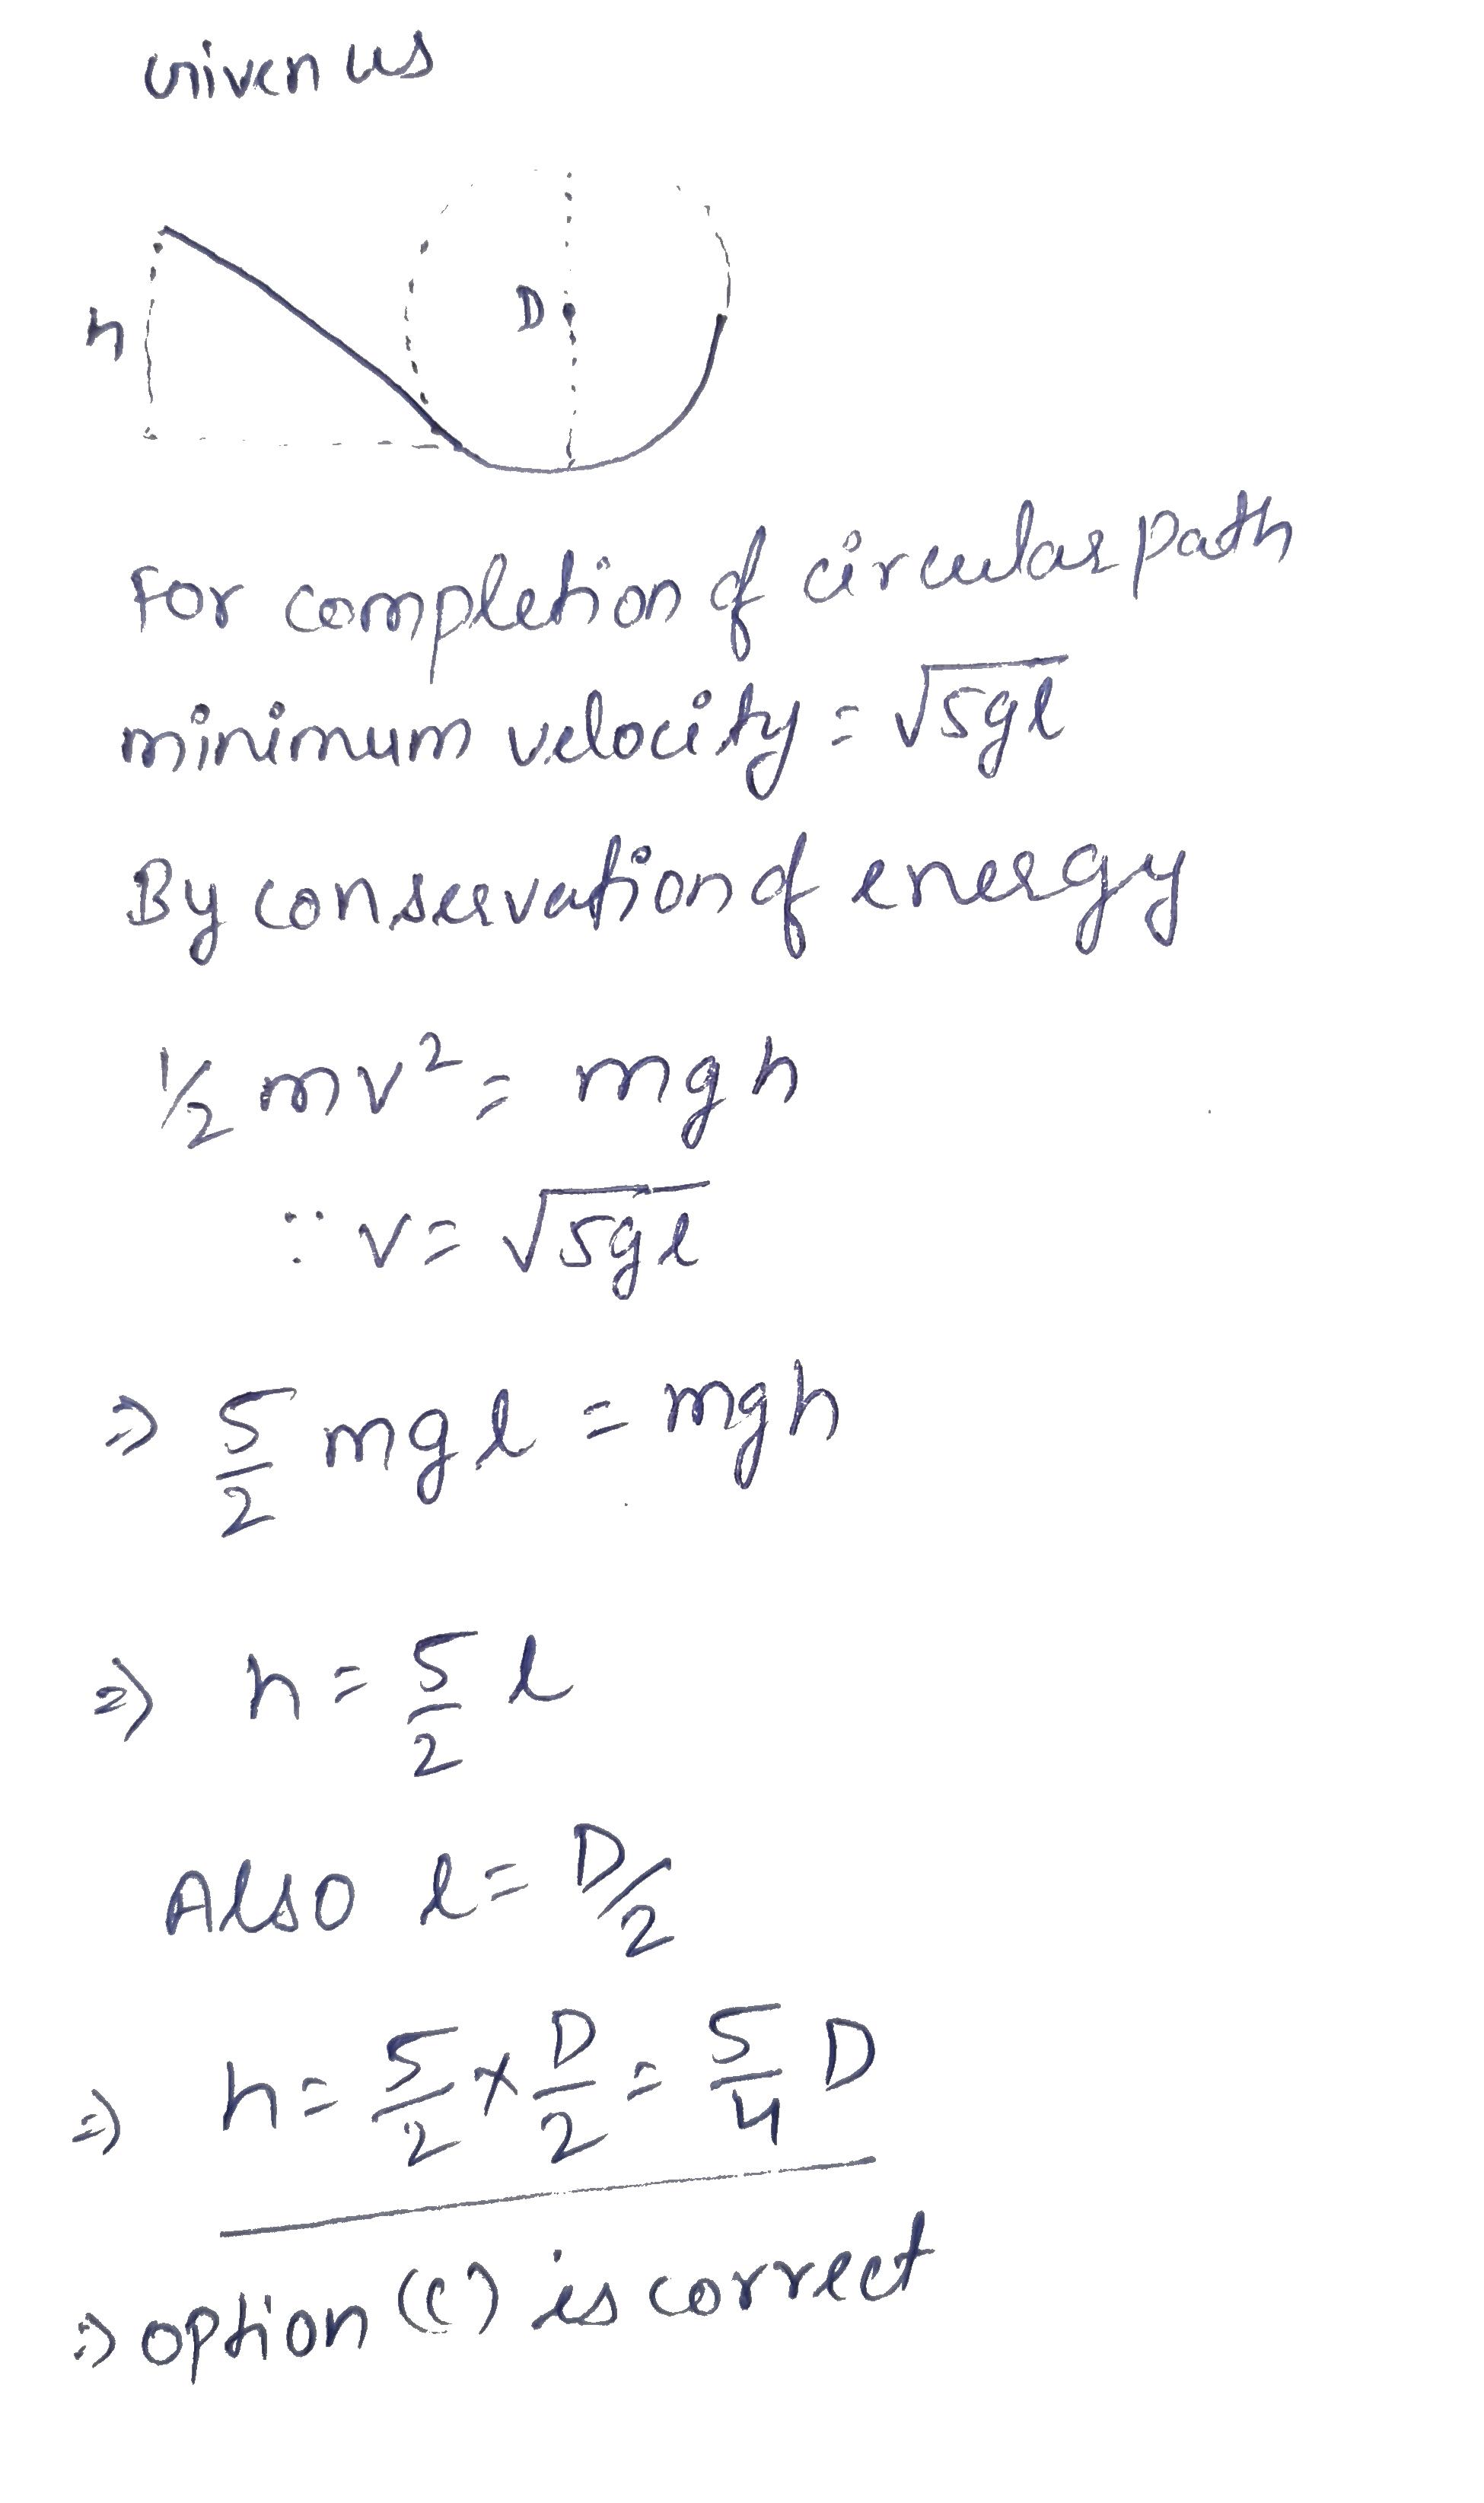 Given us
h
D
For completion of circular path
minimum velocity = √5gl
By conservation of energy
1/2 mv² = mgh
∵ v = √5gl
⇒ 5/2 mgl = mgh
⇒ h = 5/2 l
Also l = D/2
⇒ h = 5/2 × D/2 = 5/4 D
⇒ option (C) is correct